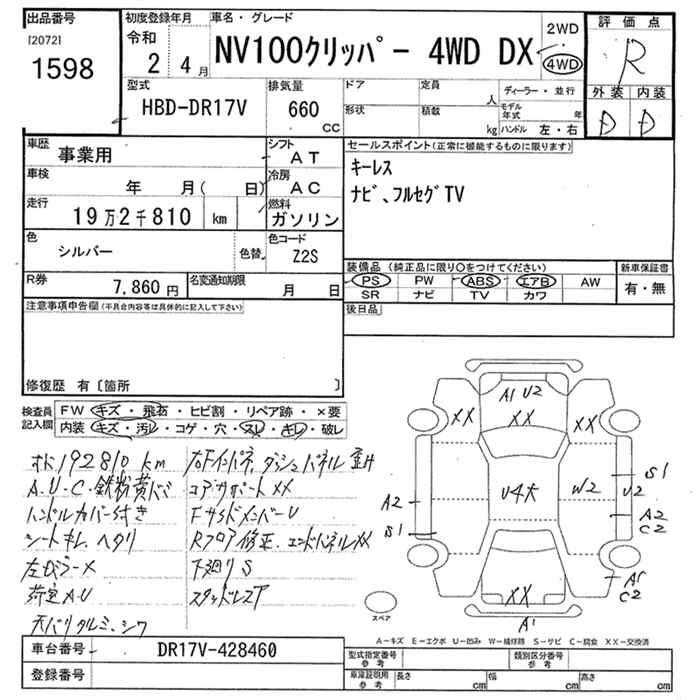 出品番号
[2072]
1598
初度登録年月
令和
2 4月
車名・グレード
NV100クリッパー 4WD DX
2WD
4WD
評価点
R
外装 内装
D D
型式
HBD-DR17V
排気量
660
CC
ドア
定員
人
形状
積載
kg
ディーラー・並行
モデル年式 年
ハンドル 左・右
車歴
事業用
シフト
AT
車検
年 月( 日)
冷房
AC
走行
19万2千810 km
燃料
ガソリン
色
シルバー
色替
色コード
Z2S
R券
7,860 円
名変通知期限
月 日
セールスポイント(正常に機能するものに限ります)
キーレス
ナビ、フルセグTV
装備品 (純正品に限り○をつけてください)
新車保証書
PS PW ABS エアB AW
有・無
SR ナビ TV カワ
後日品
注意事項申告欄(不具合内容等は具体的に記入して下さい)
修復歴 有〔箇所 〕
検査員記入欄
FW キズ・飛石・ヒビ割・リペア跡・×要
内装 キズ・汚レ・コゲ・穴・スレ・キレ・破レ
192810 km
A.U・C・鉄粉黄ばミ
ハンドルカバー付き
シートキレ、ヘタリ
左ピラーX
荷室A.U
天バリタルミ、シワ
コアサポートXX
FサイドメンバーU
Rフロア修正、エンドパネルXX
下廻りS
スタッドレスタイア
A1 U2
XX
XX
XX
U4大
W2
S1
U2
A2
C2
A2
S1
A1
C2
XX
A1
スペア
A-キズ E-エクボ U-凹み W-補修跡 S-サビ C-腐食 XX-交換済
車台番号
DR17V-428460
登録番号
型式指定番号
参考
類別区分番号
参考
車庫証明用
参考
長さ cm
幅 cm
高さ cm